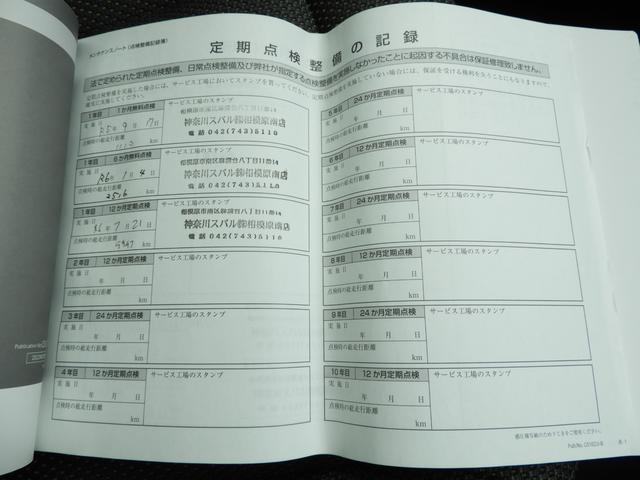 メンテナンスノート（点検整備記録簿）
定期点検整備の記録
法で定められた定期点検整備、日常点検整備及び弊社が指定する点検整備を実施しなかったことに起因する不具合は保証修理致しません。
1年目 1か月無料点検
サービス工場のスタンプ
実施日
R5年 9月 17日
神奈川スバル㈱相模原南店
電話 042(743)5110
点検時の総走行距離
km
1年目 6か月無料点検
サービス工場のスタンプ
相模原市南区麻溝台八丁目11番14
実施日
R6年 1月 4日
神奈川スバル㈱相模原南店
電話 042(743)5110
点検時の総走行距離
km
1年目 12か月定期点検
サービス工場のスタンプ
相模原市南区麻溝台八丁目11番14
実施日
R6年 7月 21日
神奈川スバル㈱相模原南店
電話 042(743)5110
点検時の総走行距離
km
2年目 12か月定期点検
サービス工場のスタンプ
実施日
年 月 日
点検時の総走行距離
km
3年目 24か月定期点検
サービス工場のスタンプ
実施日
年 月 日
点検時の総走行距離
km
4年目 12か月定期点検
サービス工場のスタンプ
実施日
年 月 日
点検時の総走行距離
km
5年目 24か月定期点検
サービス工場のスタンプ
実施日
年 月 日
点検時の総走行距離
km
6年目 12か月定期点検
サービス工場のスタンプ
実施日
年 月 日
点検時の総走行距離
km
7年目 24か月定期点検
サービス工場のスタンプ
実施日
年 月 日
点検時の総走行距離
km
8年目 12か月定期点検
サービス工場のスタンプ
実施日
年 月 日
点検時の総走行距離
km
9年目 24か月定期点検
サービス工場のスタンプ
実施日
年 月 日
点検時の総走行距離
km
10年目 12か月定期点検
サービス工場のスタンプ
実施日
年 月 日
点検時の総走行距離
km